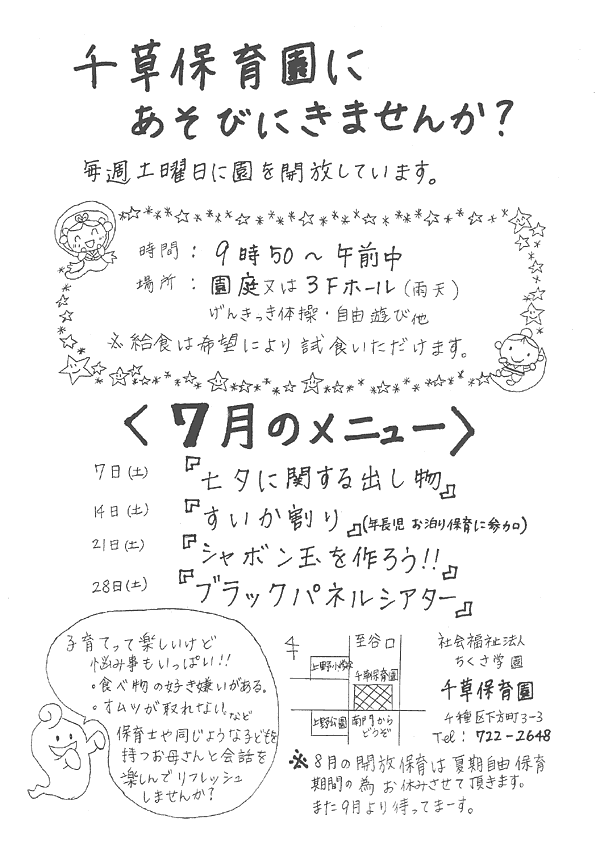 千草保育園に
あそびにきませんか?
毎週土曜日に園を開放しています。
時間 : 9時50〜午前中
場所 : 園庭又は3Fホール(雨天)
げんきっき体操・自由遊び他
※給食は希望により試食いただけます。
〈7月のメニュー〉
7日(土) 『七夕に関する出し物』
14日(土) 『すいか割り』(年長児 お泊り保育に参加)
21日(土) 『シャボン玉を作ろう!!』
28日(土) 『ブラックパネルシアター』
子育てって楽しいけど
悩み事もいっぱい!!
・食べ物の好き嫌いがある。
・オムツが取れない など
保育士や同じような子どもを
持つお母さんと会話を
楽しんでリフレッシュ
しませんか?
至谷口
上野小学校
千草保育園
上野公園
南門から
どうぞ
社会福祉法人
ちくさ学園
千草保育園
千種区下方町3-3
Tel: 722-2648
※8月の開放保育は夏期自由保育
期間の為お休みさせて頂きます。
また9月より待ってまーす。